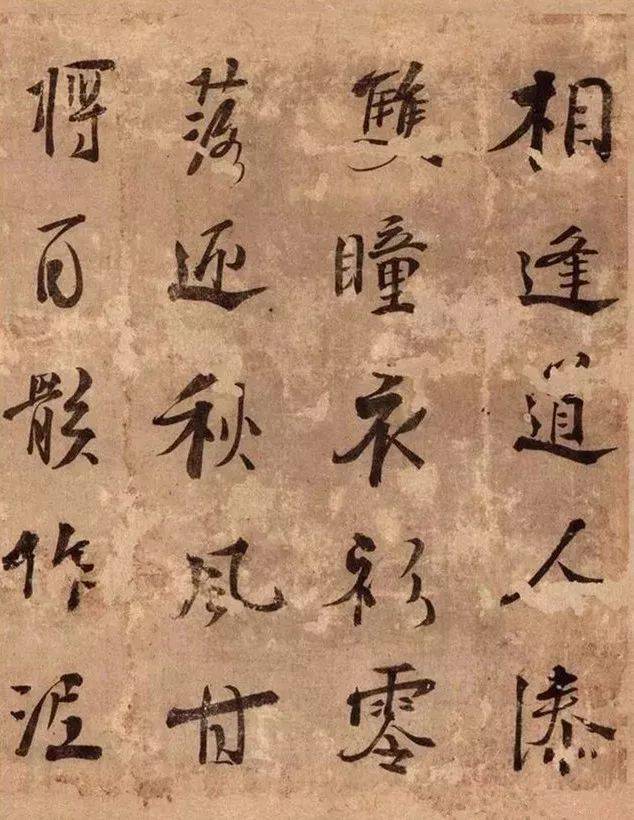 相逢道人漆
雙瞳衣衫零
落迎秋風甘
將百骸作泥